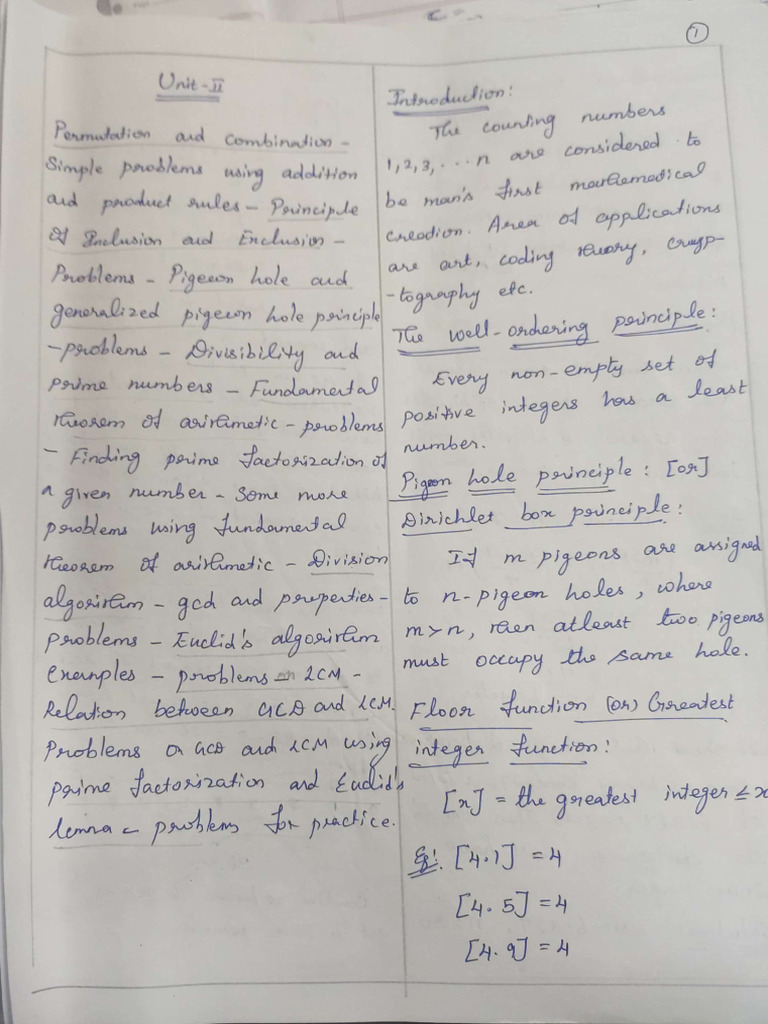 1
Unit-II
Permutation and combination -
Simple problems using addition
and product rules - Principle
of Inclusion and Exclusion -
Problems - Pigeon hole and
generalized pigeon hole principle
- problems - Divisibility and
prime numbers - Fundamental
theorem of arithmetic - problems
- Finding prime factorization of
a given number - Some more
problems using fundamental
theorem of arithmetic - Division
algorithm - gcd and properties -
problems - Euclid's algorithm
Examples - problems on LCM -
Relation between GCD and LCM.
Problems on GCD and LCM using
prime factorization and Euclid's
lemma - problems for practice.
Introduction:
The counting numbers
1,2,3, ... n are considered to
be man's first mathematical
creation. Area of applications
are art, coding theory, cryp-
-tography etc.
The well-ordering principle:
Every non-empty set of
positive integers has a least
number.
Pigeon hole principle: [or]
Dirichlet box principle:
If m pigeons are assigned
to n-pigeon holes, where
m>n, then atleast two pigeons
must occupy the same hole.
Floor function (or) Greatest
integer function:
[x] = the greatest integer ≤ x
Eg: [4.1] = 4
[4.5] = 4
[4.9] = 4